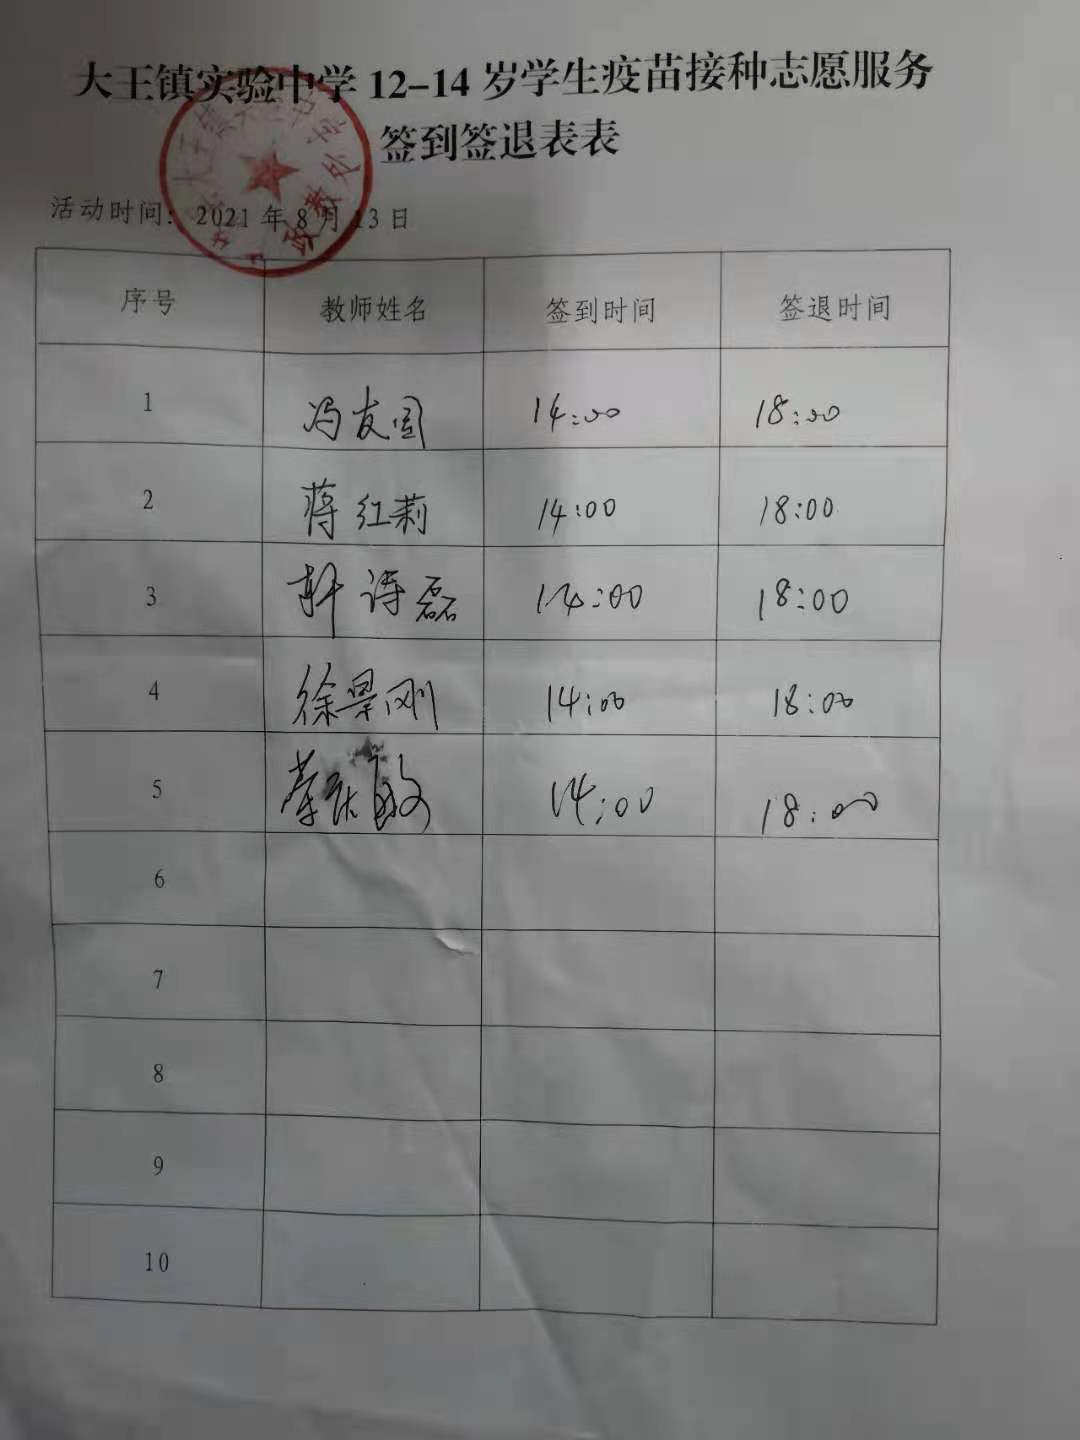 大王镇实验中学 12–14 岁学生疫苗接种志愿服务
签到签退表表
活动时间: 2021 年 8 月 13 日
序号 教师姓名 签到时间 签退时间
1 冯友国 14:00 18:00
2 蒋红莉 14:00 18:00
3 轩诗磊 14:00 18:00
4 徐景刚 14:00 18:00
5 14:00 18:00
6
7
8
9
10